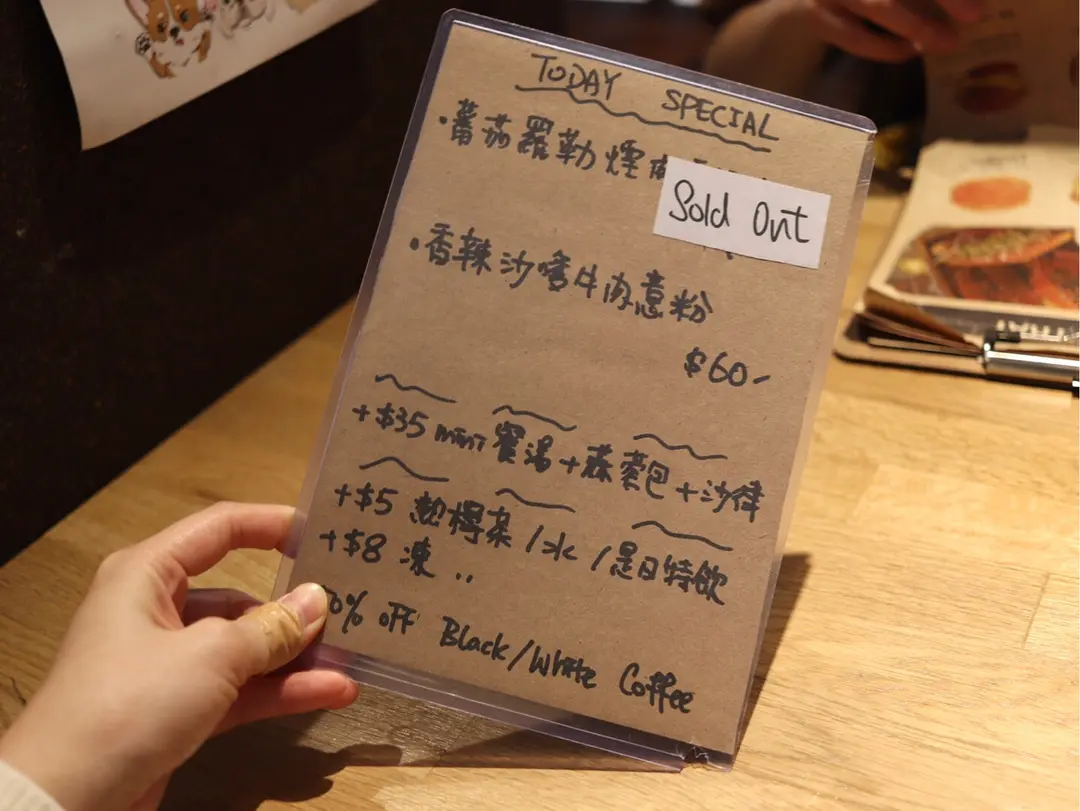 TODAY SPECIAL
·蕃茄羅勒煙肉
Sold Out
·香辣沙嗲牛肉意粉
$60-
+$35 mini 餐湯+蒜蓉包+沙律
+$5 熱檸茶/水/是日特飲
+$8 凍 ..
0% off Black/White Coffee